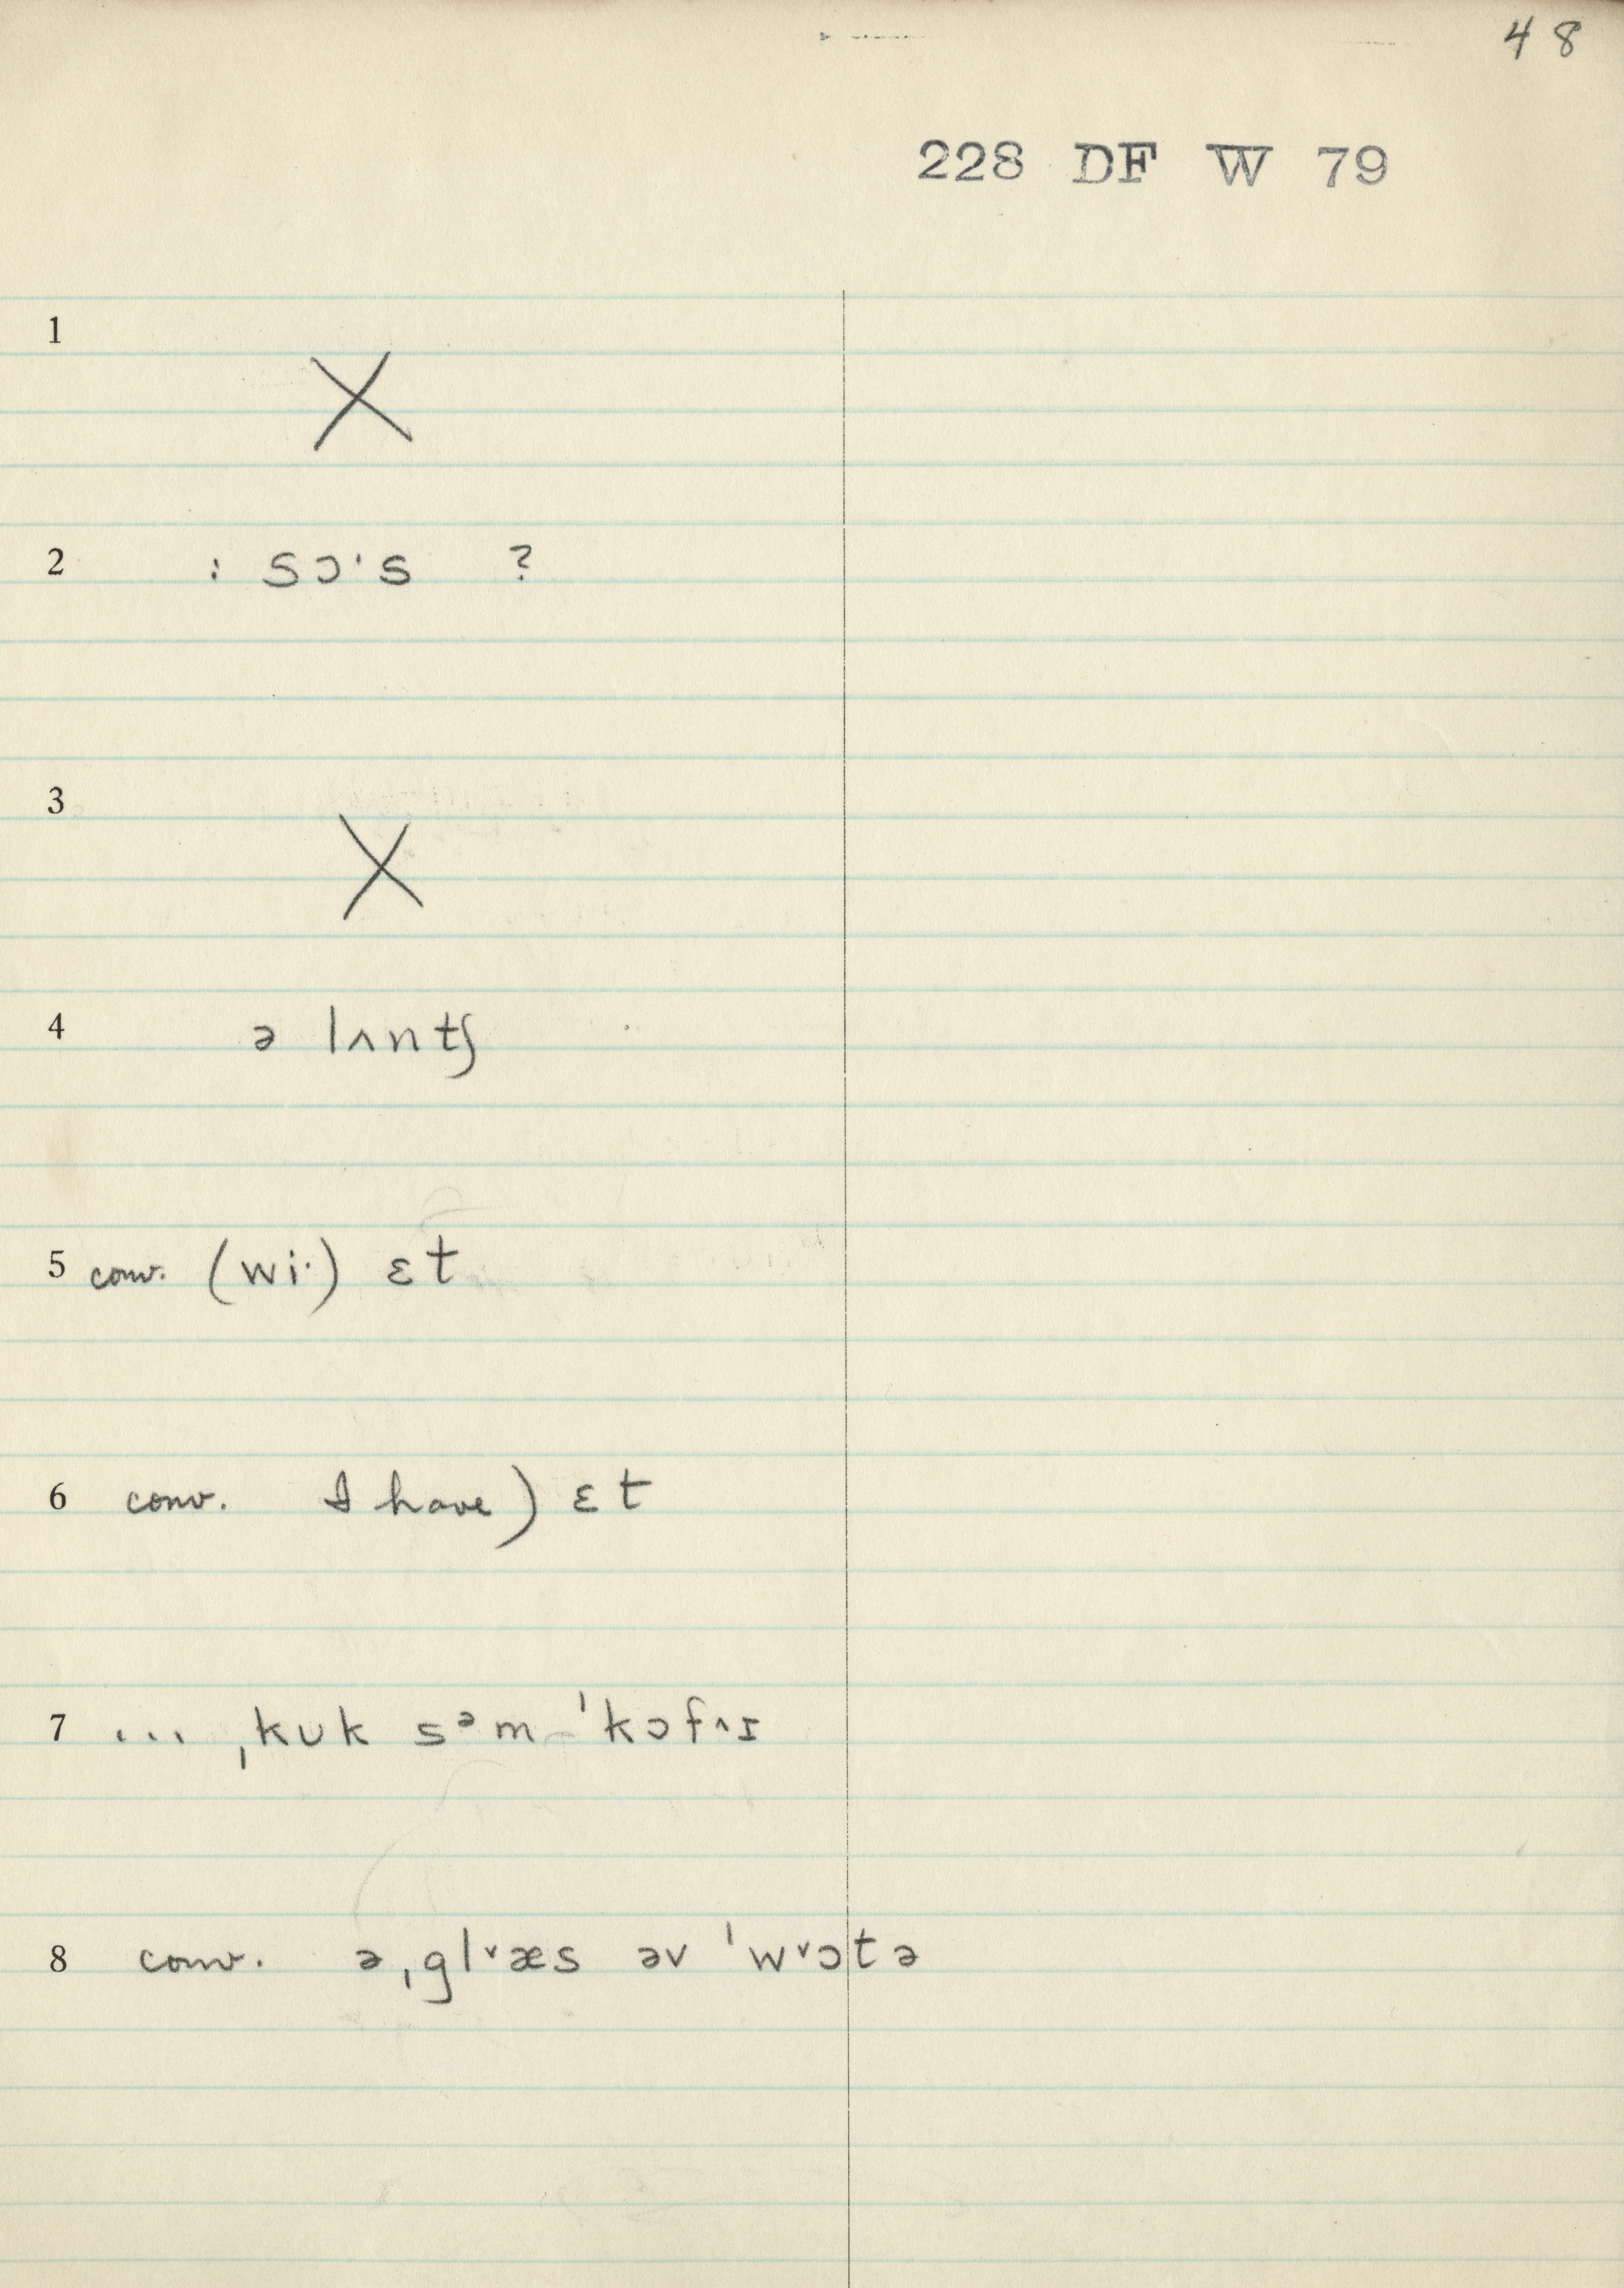 48
228 DF W 79
1 X
2 : sɔˑs ?
3 X
4 ə lʌntʃ
5 conv. (wiˑ) ɛt
6 conv. I have) ɛt
7 ... ˌkʊk sᵊm ˈkɔf˄ɪ
8 conv. ə ˌgl˅æs əv ˈw˅ɔtə